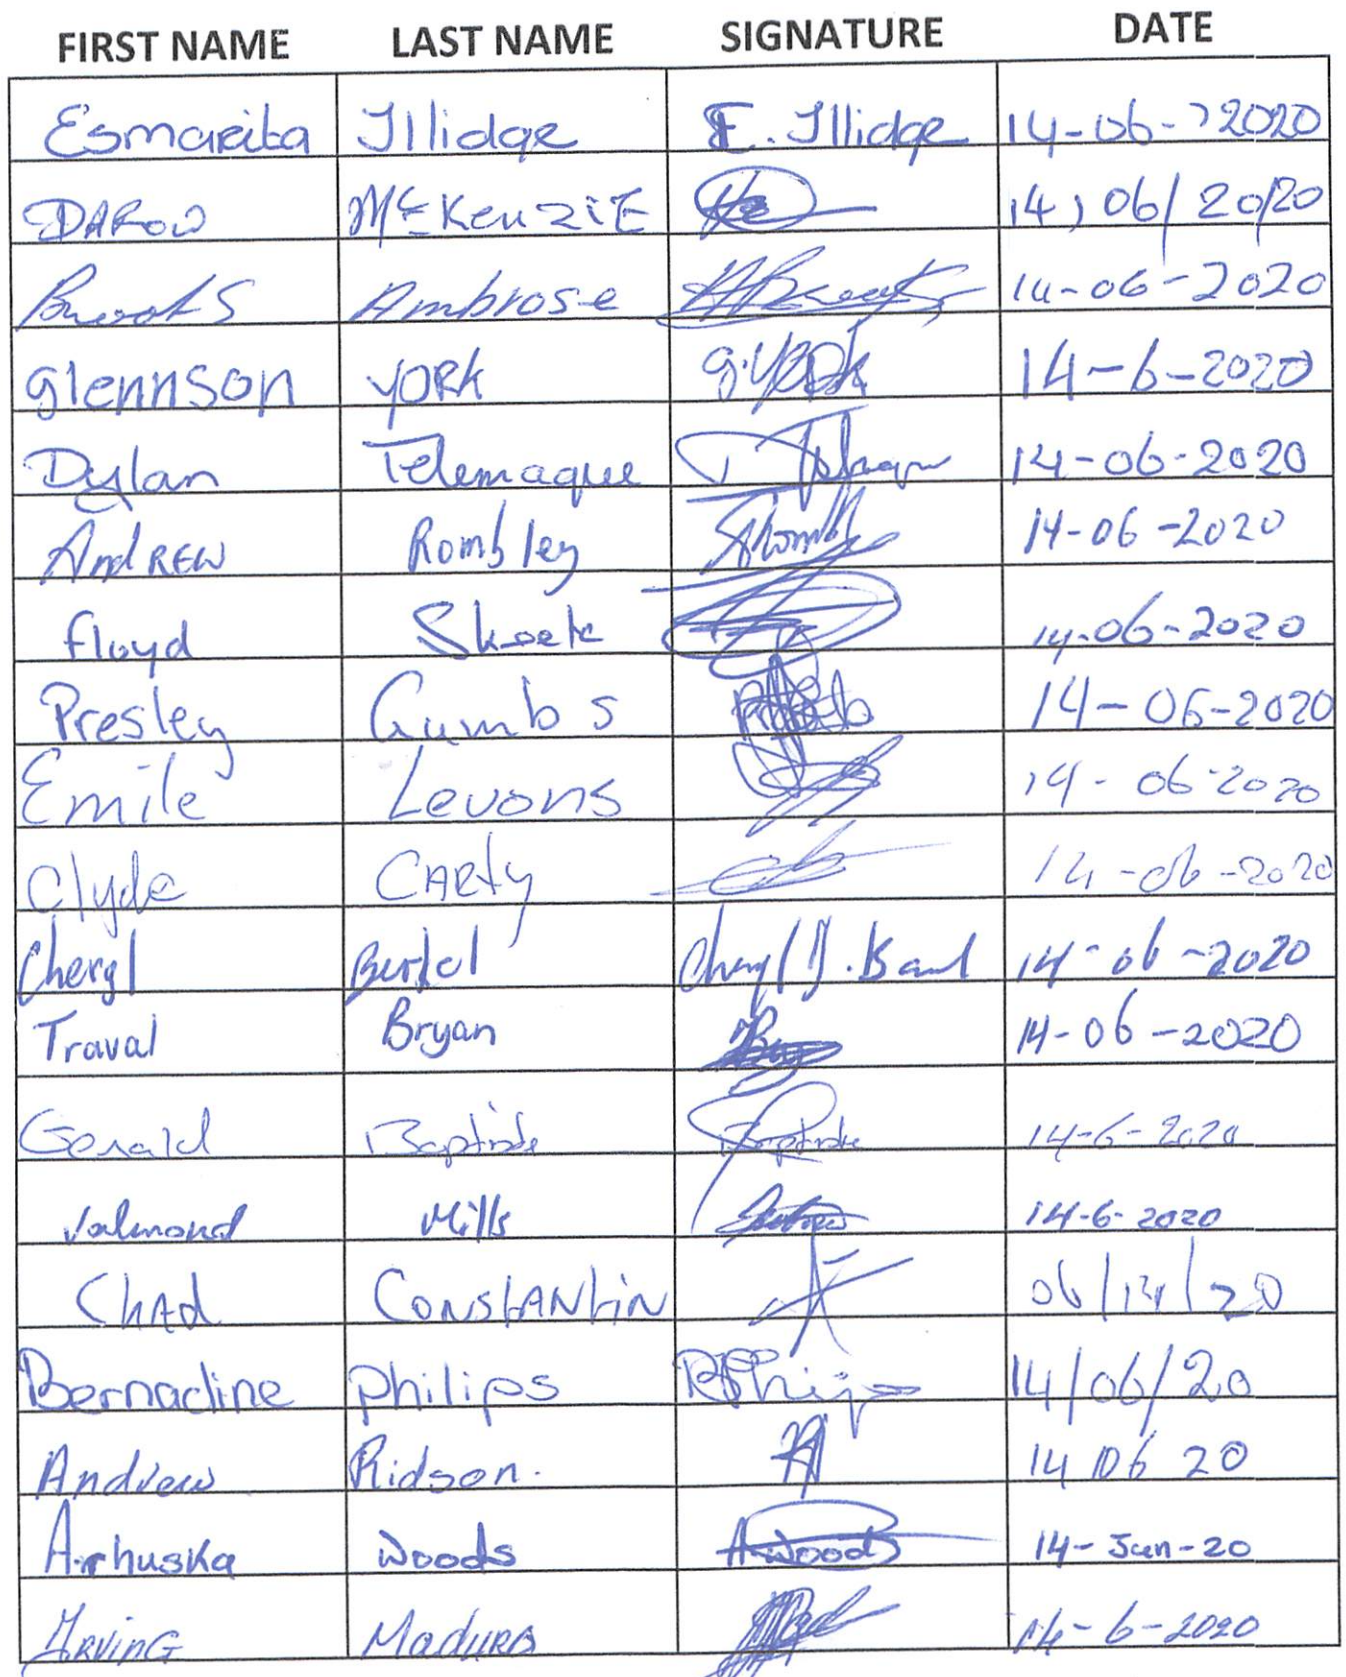 FIRST NAME LAST NAME SIGNATURE DATE
Esmarita Illidge E. Illidge 14-06-2020
DAROW McKenziE 14/06/2020
Brooks Ambrose 14-06-2020
glennson YORK g.YORK 14-6-2020
Dylan Telemaque 14-06-2020
AndREW Rombley 14-06-2020
floyd 14-06-2020
Presley Gumbs 14-06-2020
Emile Levons 14-06-2020
Clyde CARty 14-06-2020
Cheryl 14-06-2020
Traval Bryan 14-06-2020
Gerald Baptiste Baptiste 14-6-2020
Valmond Mills 14-6-2020
ChAd ConstANtin 06/14/20
Bernadine philips 14/06/20
Andrew Ridson. 14 06 20
Arhuska Woods A.Woods 14-Jun-20
IRVING MaduRO 14-6-2020